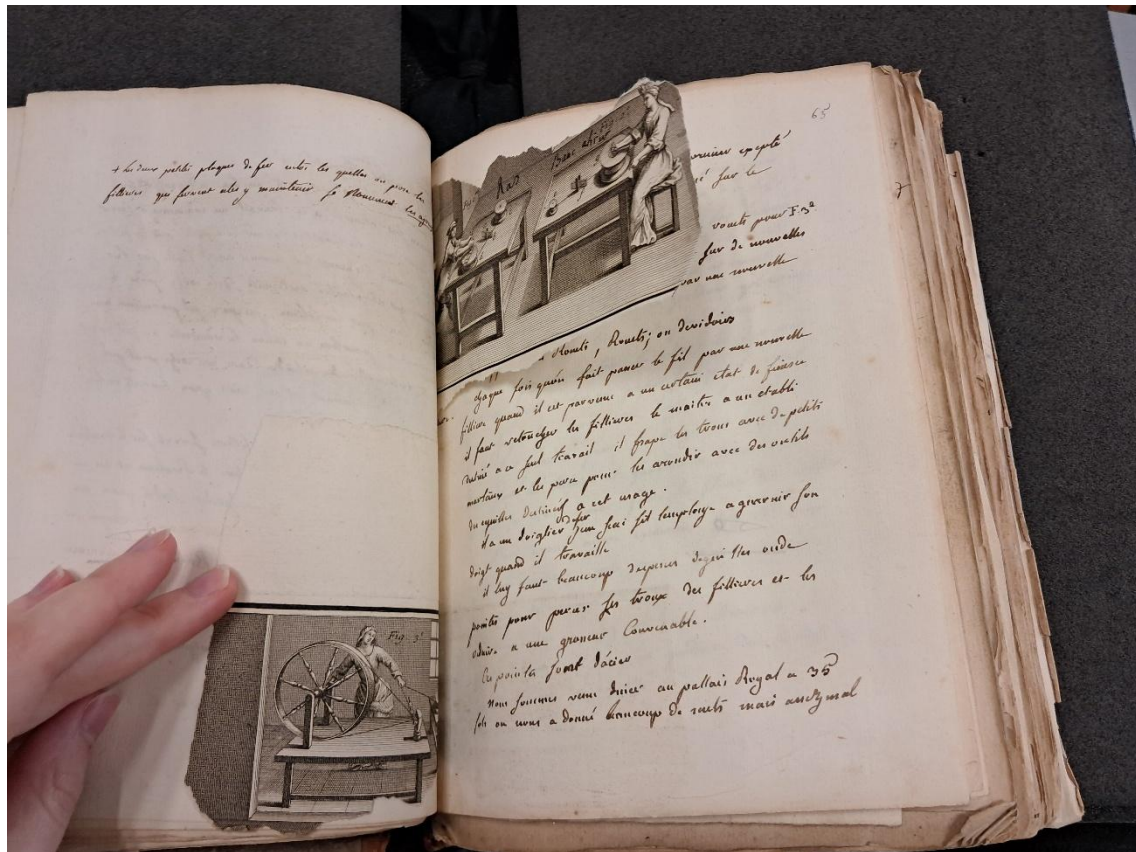 + les deux petits plaques de fer entre les quelles on pose les
fillieres qui servent ales y maintenir se nomment les
Fig. 3e
65
Banc à tirer
ouvrier excepté
sur le
rouets pour F. 3e
sur de nouvelles
par une nouvelle
Rouets, Rouets; ou devidoirs
chaque fois quon fait passer le fil par une nouvelle
filliere quand il est parvenu a un certain etat de finesse
il faut retoucher les fillieres le maitre a un etabli
destiné a ce seul travail il frape les trous avec de petits
marteaux et les perce pour les arondir avec des outils
ou eguilles destinées a cet usage.
il a un doigtier de fer dont il lemploye a garnir son
doigt quand il travaille
il luy faut beaucoup despeces deguilles ou de
pointes pour percer les troux des fillieres et les
reduire a une grosseur Convenable.
Ces pointes sont dacier
nous sommes venu diner au pallais Royal a 35
sols on nous a donné beaucoup de mets mais assez mal